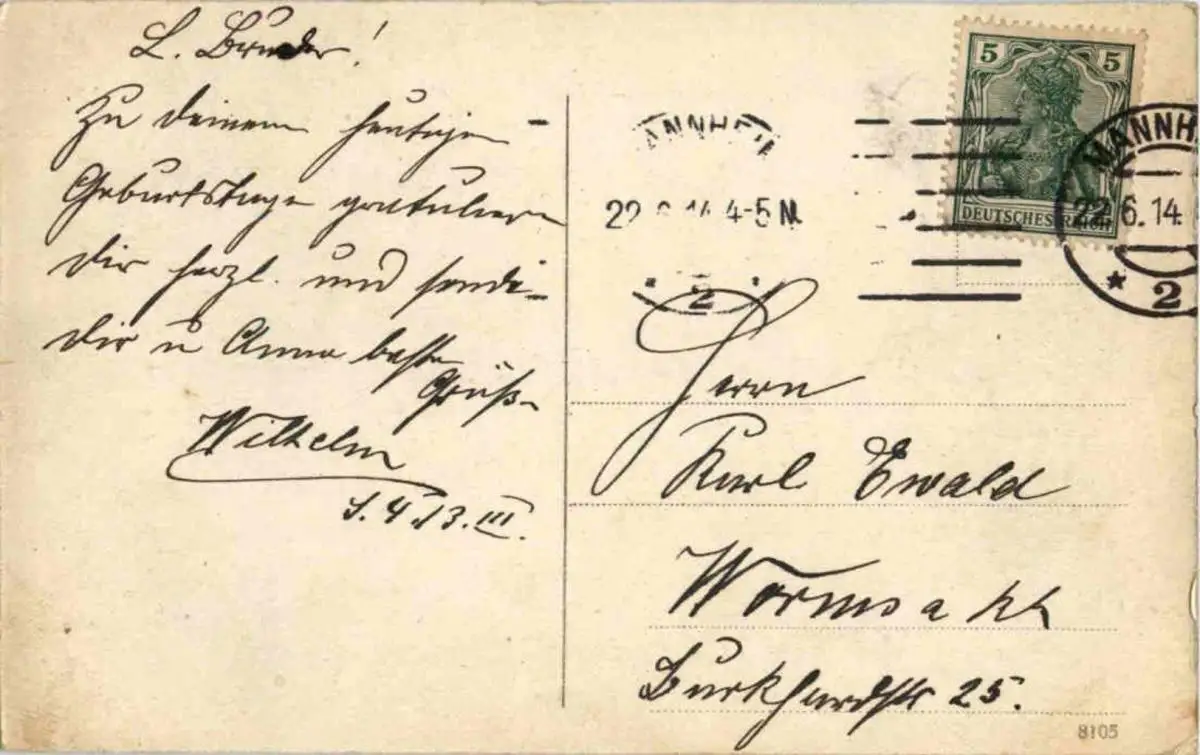 L. Bruder!
Zu deinem heutigen
Geburtstage gratuliere
dir herzl. und sende
dir u Anna beste
Grüße
Wilhelm
S.4.13.III.
MANNHEIM
22.6.14. 4-5 N.
2
5 5
DEUTSCHES REICH
MANNH
22.6.14.
* 2
Herrn
Karl Ewald
Worms a Rh
Burkhardstr 25.
8105